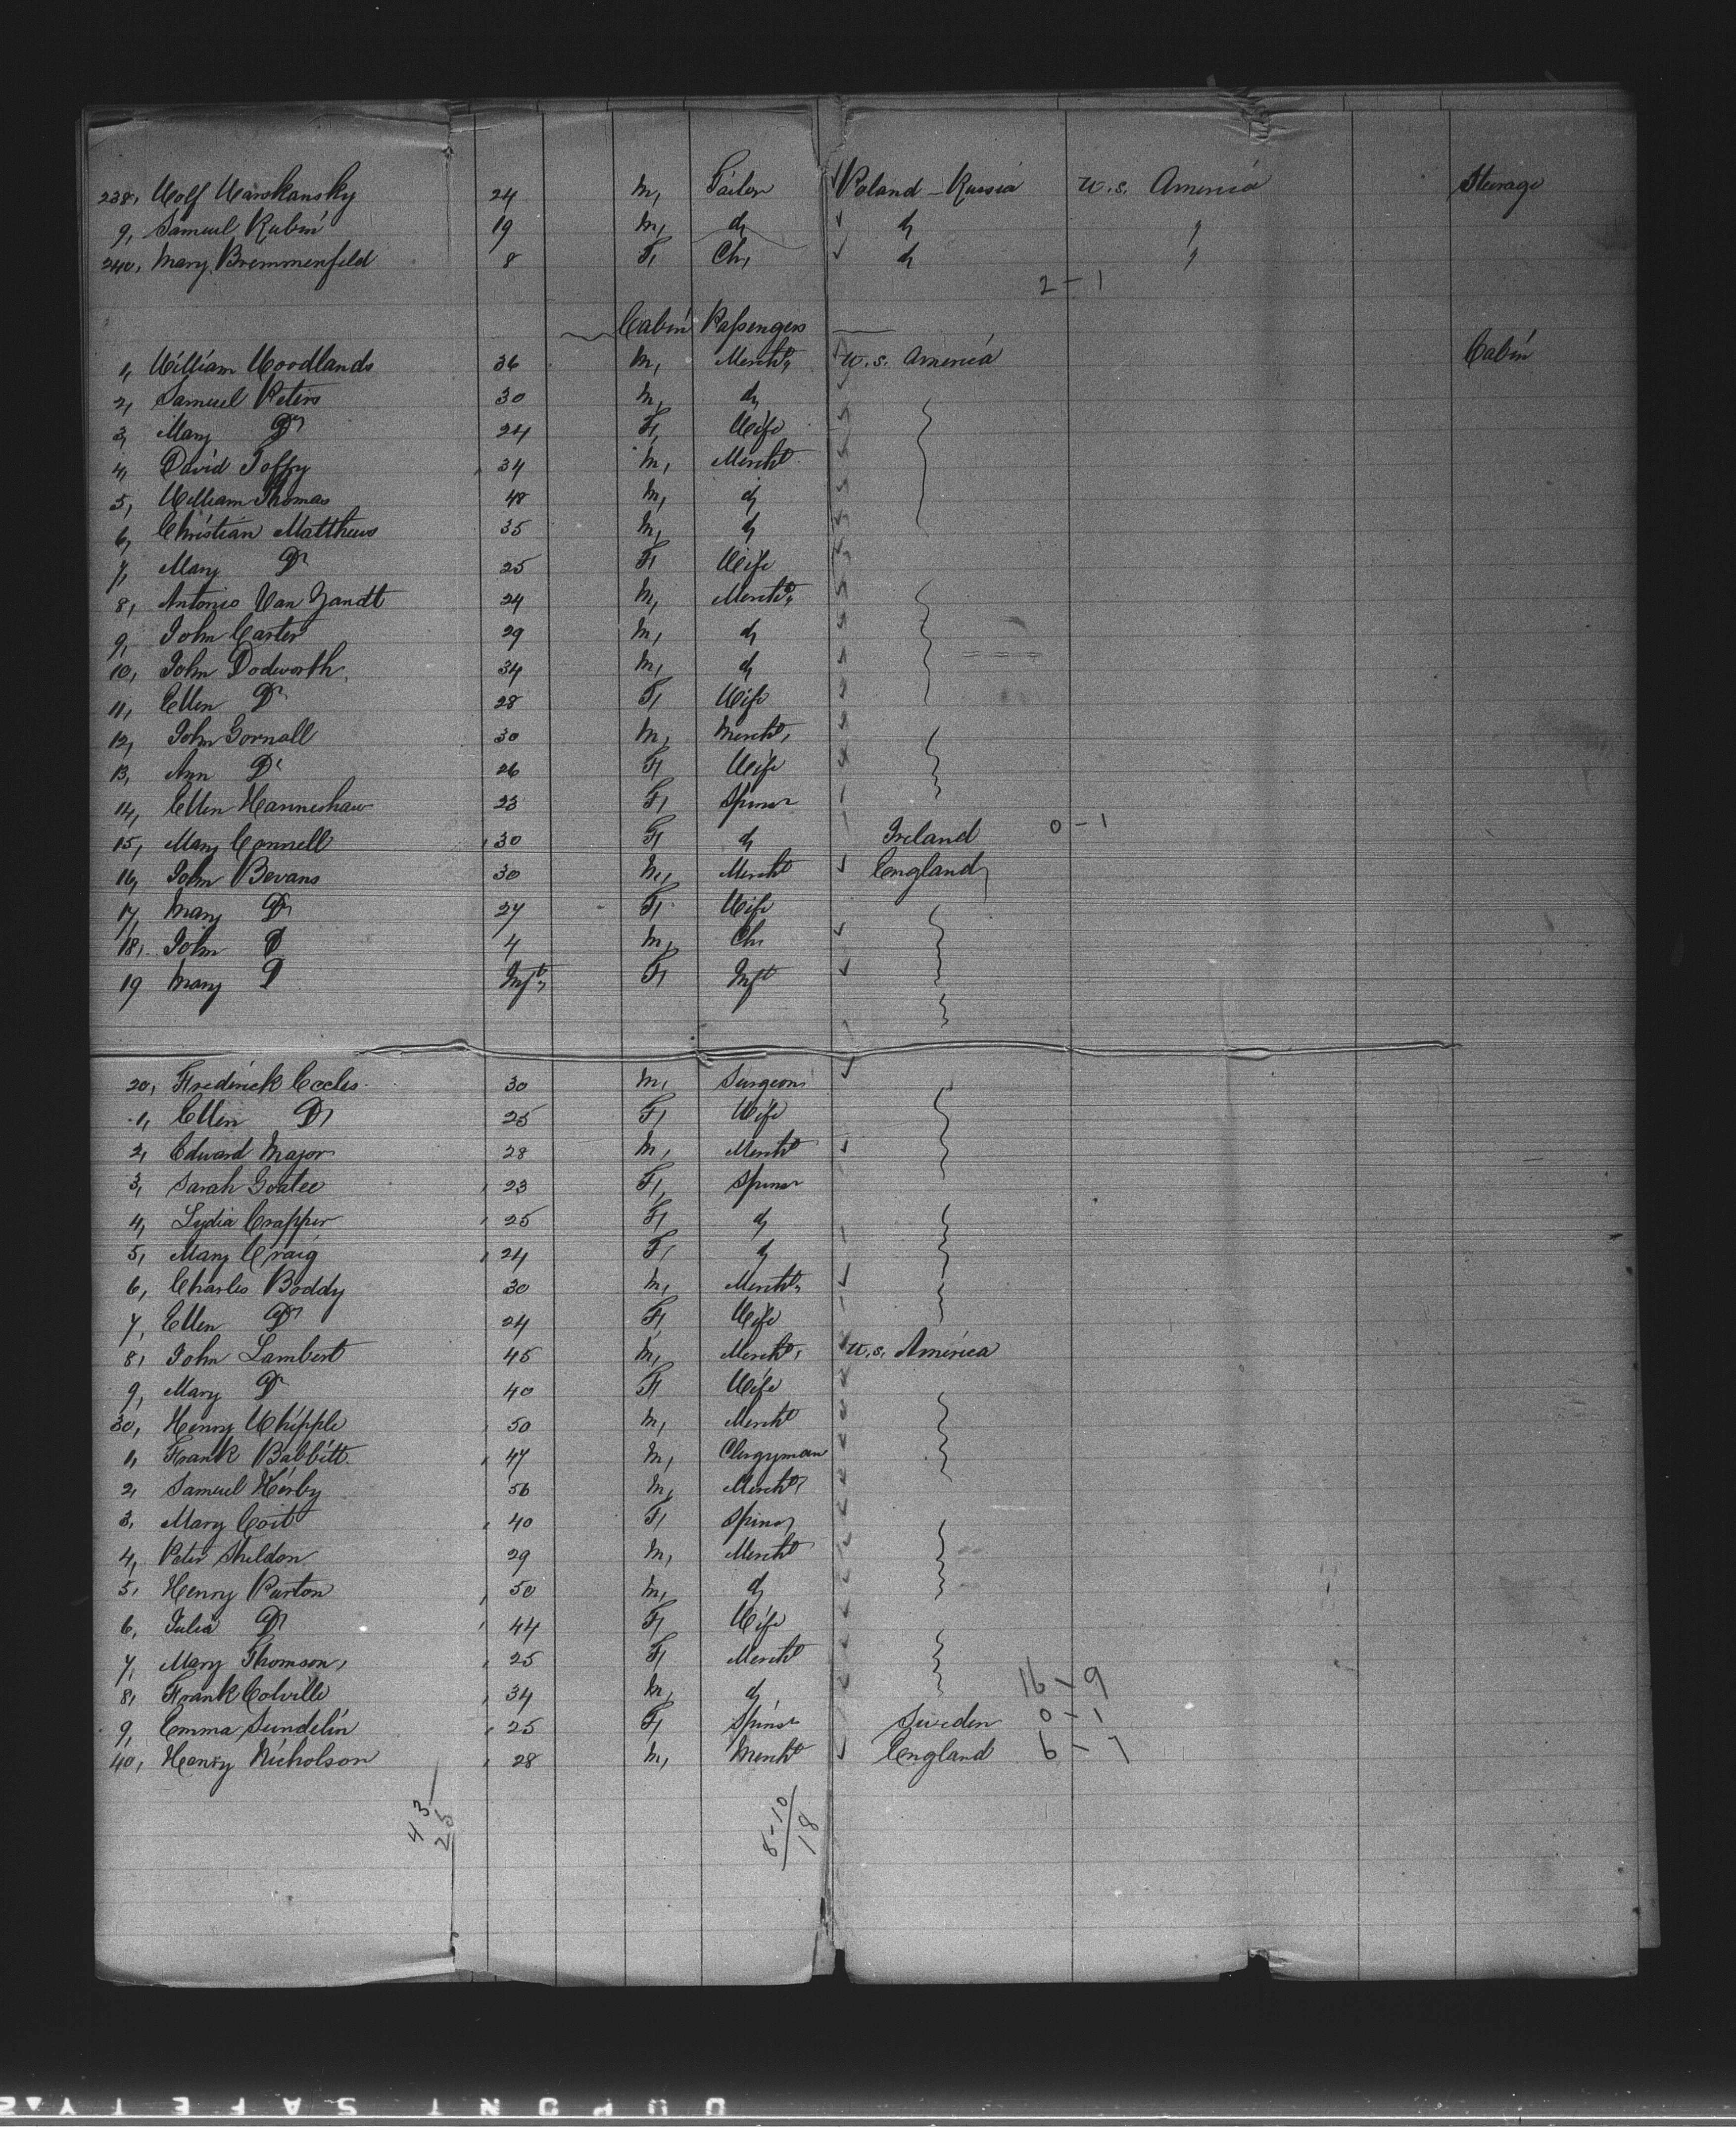 238, Wolf Warskansky 24 M, Tailor Poland - Russia U.S. America Steerage
9, Samuel Rubin 19 M, do do "
240, Mary Bremmenfeld 8 F, Ch, do "
2 - 1
Cabin Passengers
1, William Woodlands 36 M, Mercht, U.S. America Cabin
2, Samuel Peters 30 M, do
3, Mary Do 24 F, Wife
4, David Toffy 34 M, Mercht
5, William Thomas 48 M, do
6, Christian Matthews 35 M, do
7, Mary Do 25 F, Wife
8, Antonio Van Zandt 24 M, Mercht,
9, John Carter 29 M, do
10, John Dodworth 34 M, do
11, Ellen Do 28 F, Wife
12, John Gornall 30 M, Mercht,
13, Ann Do 26 F, Wife
14, Ellen Hanneshaw 23 F, Spinsr
15, Mary Connell 30 F, do Ireland 0 - 1
16, John Bevans 30 M, Mercht England
17, Mary Do 27 F, Wife
18, John D 4 M, Ch,
19 Mary D Inft, F, Inft
20, Frederick Eccles 30 M, Surgeon
1, Ellen Do 25 F, Wife
2, Edward Major 28 M, Mercht
3, Sarah Goatee 23 F, Spinsr
4, Lydia Crapper 25 F, do
5, Mary Craig 24 F, do
6, Charles Boddy 30 M, Mercht,
7, Ellen Do 24 F, Wife
8, John Lambert 45 M, Mercht, U.S. America
9, Mary Do 40 F, Wife
30, Henry Whipple 50 M, Mercht
1, Frank Babbitt 47 M, Clergyman
2, Samuel Kirby 56 M, Mercht
3, Mary Coit 40 F, Spinsr
4, Peter Sheldon 29 M, Mercht
5, Henry Purton 50 M, do
6, Julia Do 44 F, Wife
7, Mary Thomson, 25 F, Mercht
8, Frank Colville 34 M, do 16 - 9
9, Emma Sundelin 25 F, Spinsr Sweden 0 - 1
40, Henry Nicholson 28 M, Mercht England 6 - 7
43
25
8-10
18
DUPONT SAFETY